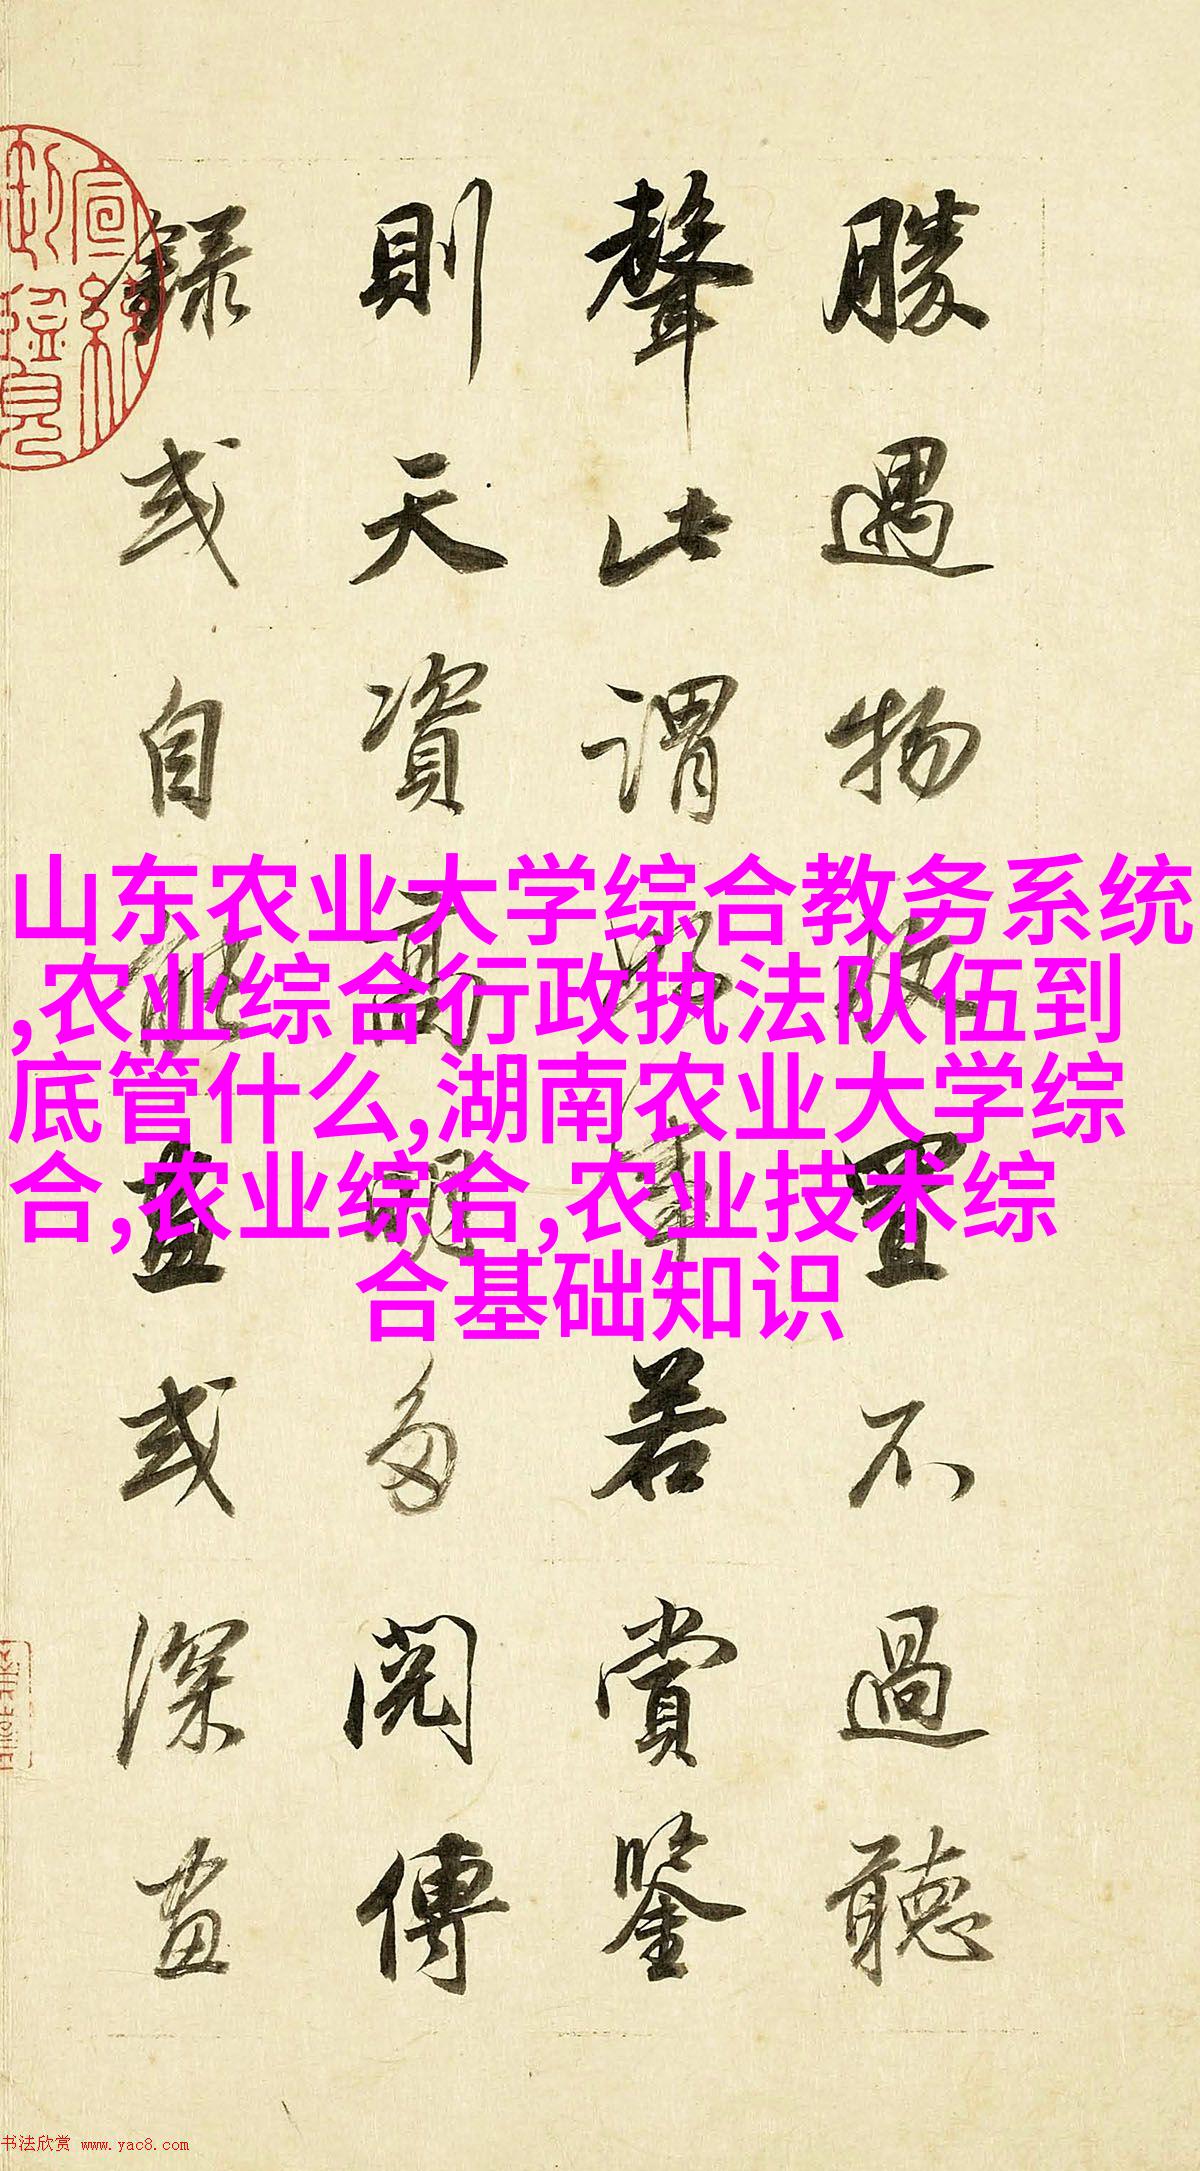 勝遇物收置不過聽
聲此謂好事若賞鑒
則天資高明多閱傳
錄或自能畫或深畫
山东农业大学综合教务系统
,农业综合行政执法队伍到
底管什么,湖南农业大学综
合,农业综合,农业技术综
合基础知识
书法欣赏 www.yac8.com